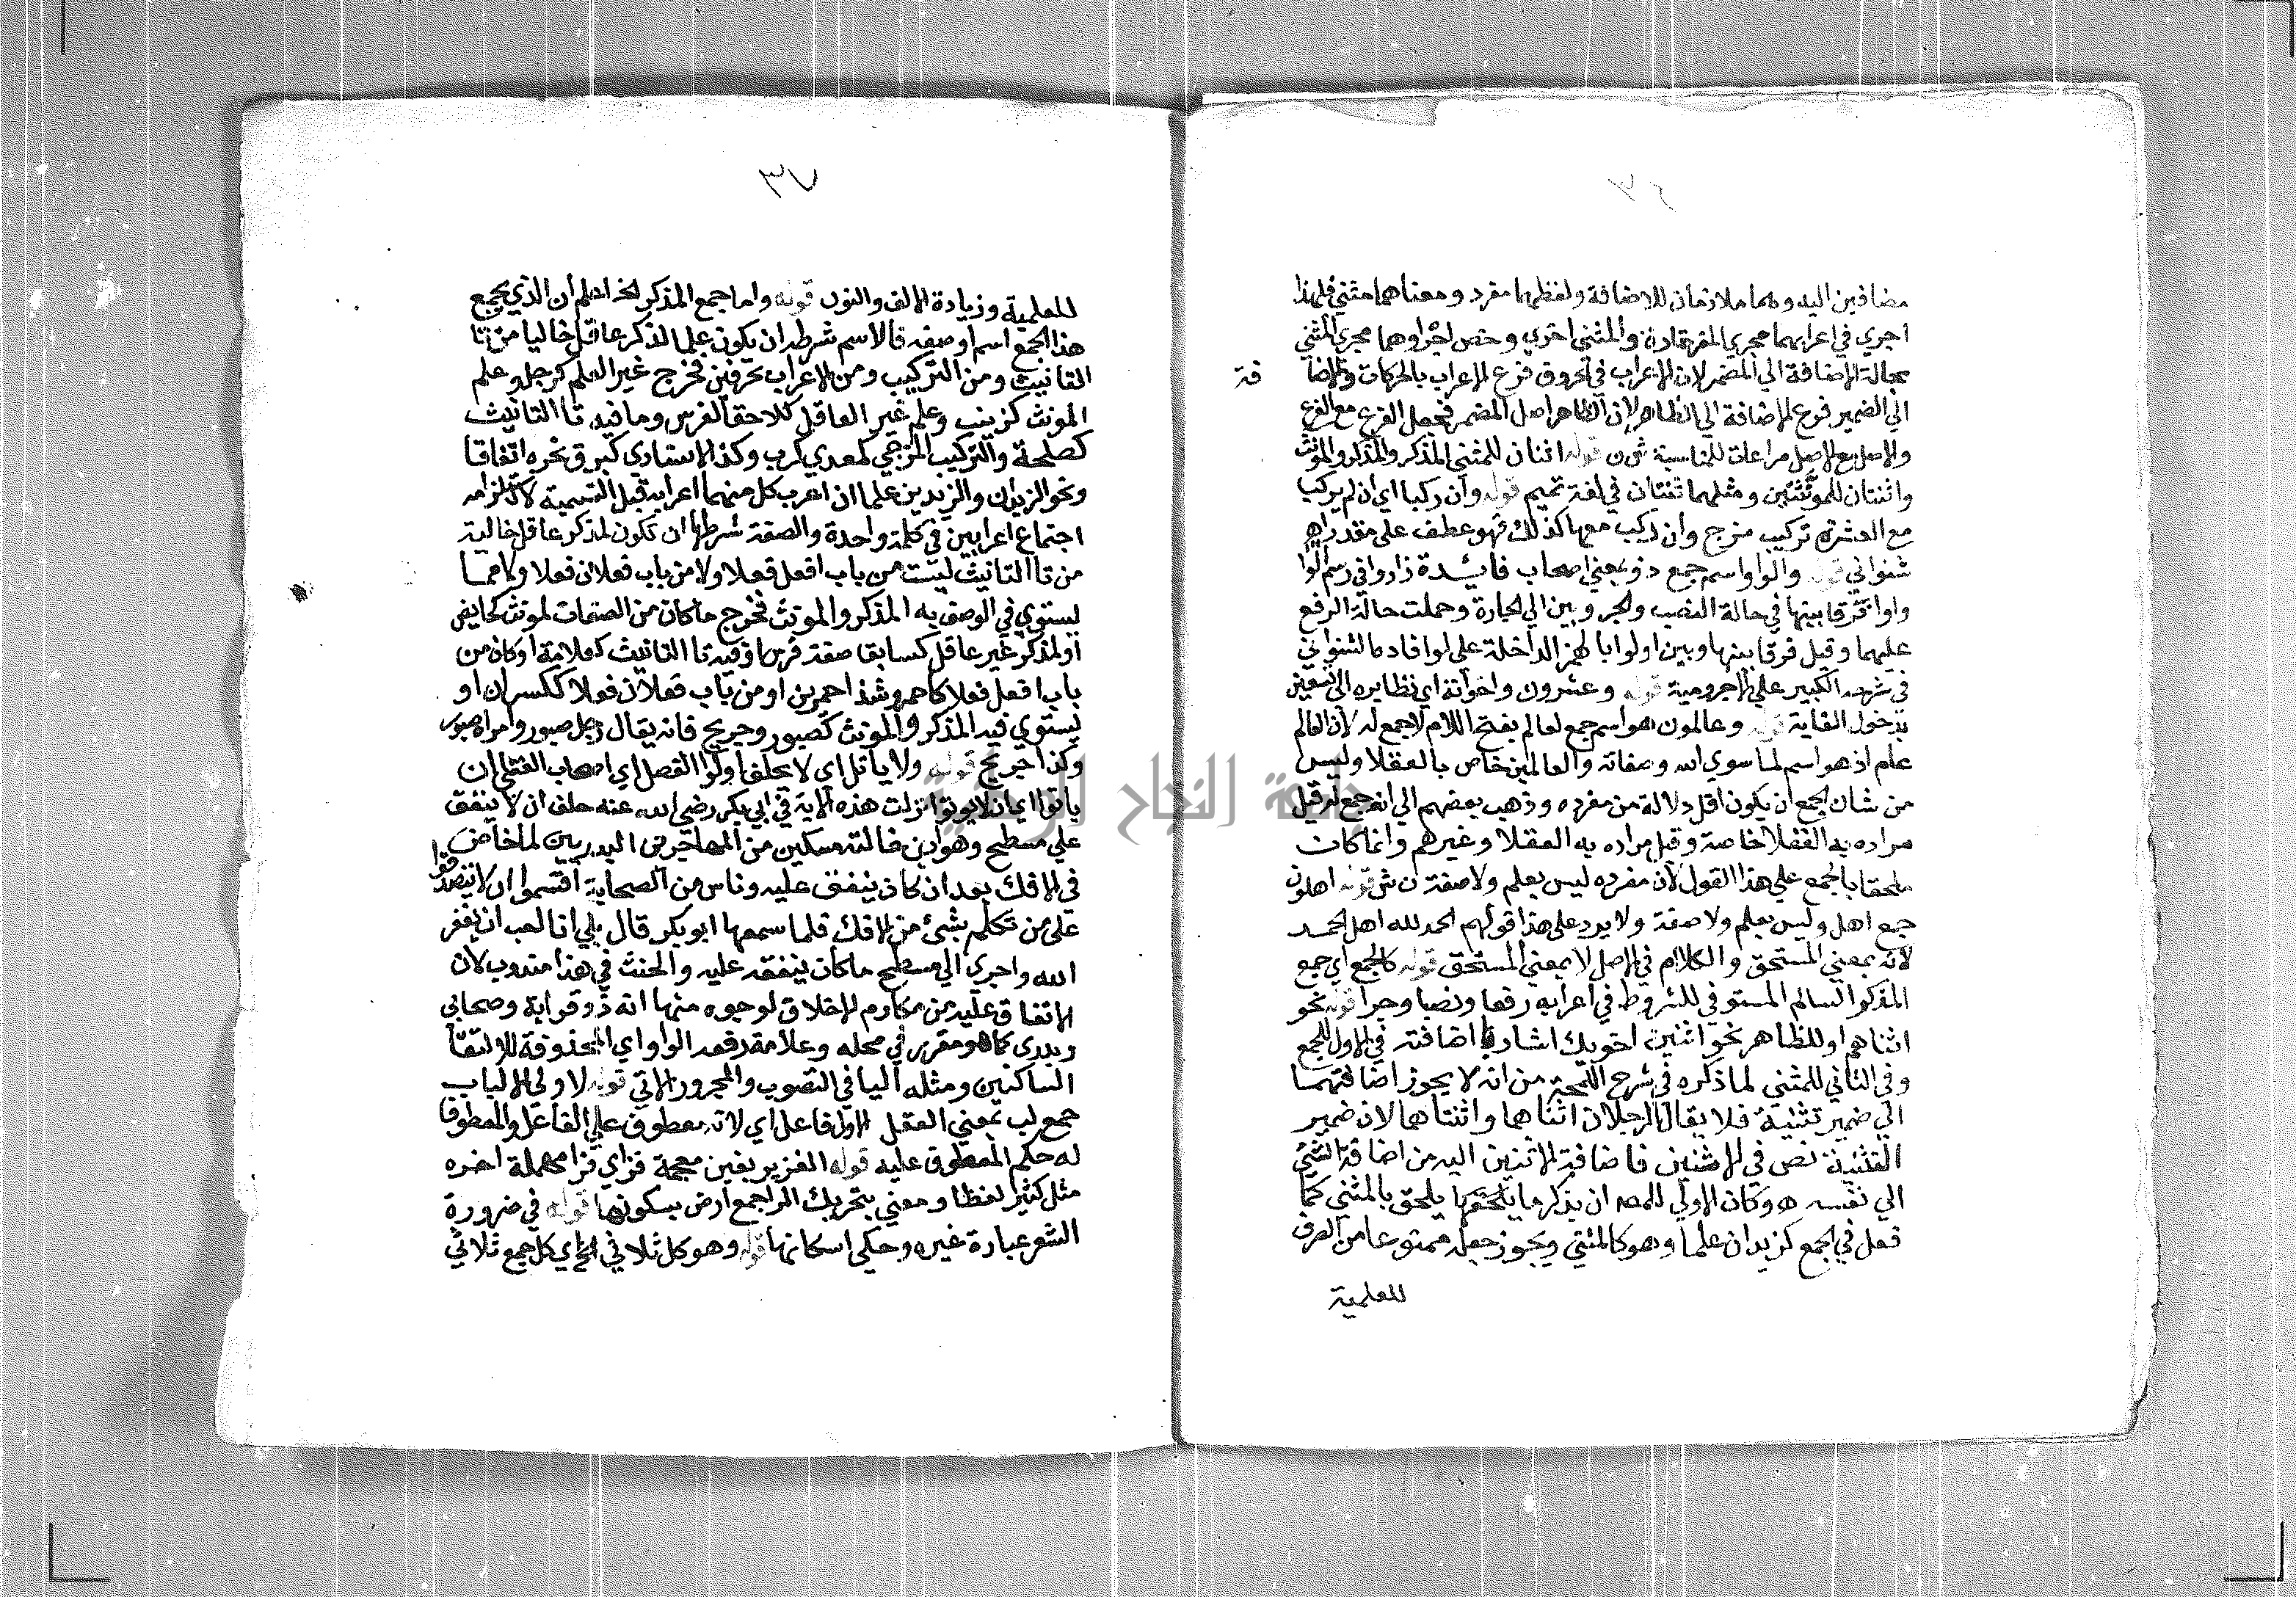 ٣٦
مضافين اليه وهما ملازمان للاضافة ولفظهما مفرد ومعناهما مثني فلهذا
اجري في اعرابهما مجري المفرد تارة والمثني اخري وخص اجراوهما مجري المثني
بحالة الاضافة الي المضمر لان الاعراب في الحروف فرع الاعراب بالحركات والاضا
فة
الي الضمير فرع الاضافة الي الظاهر لان الظاهر اصل المضمر فجعل الفرع مع الفرع
والاصل مع الاصل مراعات للمناسبة ش ن قوله اثنان للمثني المذكر والمذكر والمونث
واثنتان للمونثتين ومثلهما ثنتان في لغة تميم قوله وان ركبا اي ان لم يركب
مع العشرة تركيب مزج وان ركب معها كذلك فهو عطف على مقدر اه
شنواني قوله والوا واسم جمع ذو بمعني اصحاب فايدة زادوا في رسم الوا
واوا فرقا بينها في حالة النصب والجر وبين الي الجارة وحملت حالة الرفع
عليهما وقيل فرقا بينها وبين اولوا بالهمز الداخلة على لوا فاده الشنواني
في شرحه الكبير علي الاجرومية قوله وعشرون واخواته اي نظايره الي تسعين
بدخول الغاية قوله وعالمون هو اسم جمع لعالم بفتح اللام لا جمع له لان العالم
علم اذ هو اسم لما سوي الله وصفاته والعالمين خاص بالعقلا وليس
من شان الجمع ان يكون اقل دلالة من مفرده وذهب بعضهم الي انه جمع له قيل
مراده به العقلا خاصة وقيل مراده به العقلا وغيرهم وانما كات
ملحقا بالجمع علي هذا القول لان مفرده ليس بعلم ولا صفة ن ش قوله اهلون
جمع اهل وليس بعلم ولا صفة ولا يرد على هذا قولهم الحد لله اهل الحمد
لانه بمعني المستحق والكلام في الاصل لا بمعني المستحق قوله كالجمع اي جمع
المذكر السالم المستوفي للشروط في اعرابه رفعا ونصبا وجرا قوله نحو
اثناهم او للظاهر نحو اثنين اخويك اشار اضافته في الاول للجمع
وفي الثاني للمثني لما ذكره في شرح اللمحة من انه لا يجوز اضافتهما
الي ضمير تثنية فلا يقال الرجلان اثناهما واثنتاهما لان ضمير
التثنية نص في الاثنين فاضافة الاثنين اليه من اضافة الشئ
الي نفسه ه وكان الاولي للمصه ان يذكر ما يلحق بالمثني كما
فعل في الجمع كزيدان علما وهو كالمثني ويجوز جعله ممنوعا من الصرف
للعلمية
٣٧
للعلمية وزيادة الالف والنون قوله واما جمع المذكر الخ اعلم ان الذي يجمع
هذا الجمع اسم او صفة فالاسم شرطه ان يكون علما لمذكر عاقل خاليا من تا
التانيث ومن التركيب ومن الاعراب بحرفين فخرج غير العلم كرجل وعلم
المونث كزينب وعلم غير العاقل كلاحق الفرس وما فيه تا التانيث
كطلحة والتركيب المزجي كمعدي كرب وكذا الاسنادي كبرق نحره اتفاقا
ونحو الزيدان والزيدين علما ان اعرب كل منهما اعرابه قبل التسمية لاستلزامه
اجتماع اعرابين في كلمة واحدة والصفة شرطها ان تكون لمذكر عاقل خالية
من تا التانيث ليست من باب افعل فعلا ولا من باب فعلان فعلا ولا مما
يستوي في الوصف به المذكر والمونث فخرج ما كان من الصفات لمونث كحايض
او لمذكر غير عاقل كسابق صفة فرس او فيه تا التانيث كعلامة او كان من
باب افعل فعلا كاحمر وشذ احمرين او من باب فعلان فعلا ككسران او
يستوي فيه المذكر والمونث كصبور وجريح فانه يقال رجل صبور وامراه صبور
وكذا جريح قوله ولا ياتل اي لا يحلف اولوا الفضل اي اصحاب الغني ان
ياتوا اي ان لا يوتوا نزلت هذه الاية في ابي بكر رضي الله عنه حلف ان لا ينفق
علي مسطح وهو ابن خالته مسكين من المهاجرين البدريين لما خاض
في الافك بعد ان كان ينفق عليه وناس من الصحابة اقسموا ان لا يتصدقوا
على من تكلم بشئ من الافك فلما سمعها ابو بكر قال بلي انا احب ان يغفر
الله واجري الي مسطح ما كان ينفقه عليه والحنث في هذا مندوب لان
الانفاق عليه من مكارم الاخلاق لوجوه منها انه ذو قرابة وصحابي
وبدري كما هو مقرر في محله وعلامة رفعه الواو اي المحذوفة للالتقا
الساكنين ومثله اليا في النصوب والمجرور الاتي قوله لاولي الالباب
جمع لب بمعني العقل الاول فاعل اي لانه معطوف علي الفاعل والمعطوف
له حكم المعطوف عليه قوله الغزير بغين معجمة فزاي فرا مهملة اخره
مثل كثير لفظا ومعني بتحريك الرا جمع ارض بسكونها قوله في ضرورة
الشعر عبارة غيره وحكي اسكانها قوله وهو كل ثلاثي الخ اي كل جمع ثلاثي
جامعة النجاح الوطنية